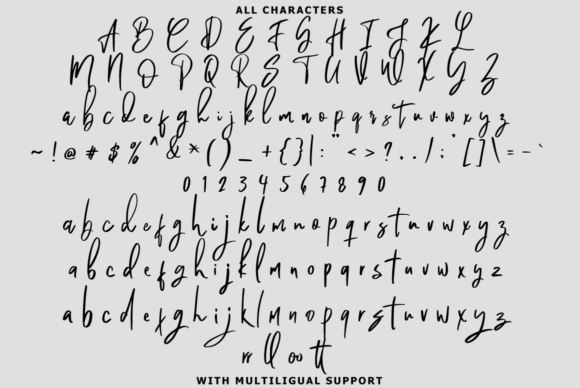 ALL CHARACTERS
A B C D E F G H I J K L
M N O P Q R S T U V W X Y Z
a b c d e f g h i j k l m n o p q r s t u v w x y z
~ ! @ # $ % ^ & * ( ) _ + { } | : " < > ? . . / ; ' [ ] \ = - `
0 1 2 3 4 5 6 7 8 9 0
a b c d e f g h i j k l m n o p q r s t u v w x y z
a b c d e f g h i j k l m n o p q r s t u v w x y z
a b c d e f g h i j k l m n o p q r s t u v w x y z
rr ll oo tt
WITH MULTILIGUAL SUPPORT